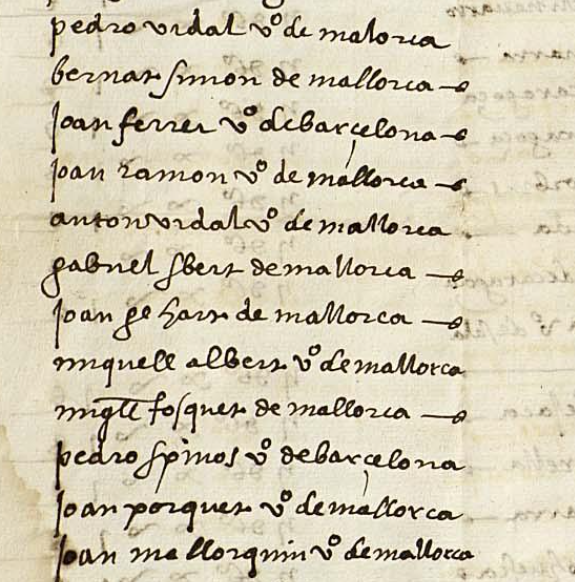 pedro vidal vº de malorca
bernat simon de mallorca
Joan ferrer vº de barçelona
Joan ramon vº de mallorca
anton vidal vº de mallorca
gabriel sbert de mallorca
Joan ge hart de mallorca
miquell albert vº de mallorca
miqll fosquet de mallorca
pedro spinos vº de barçelona
Joan porquet vº de mallorca
Joan mallorquin vº de mallorca